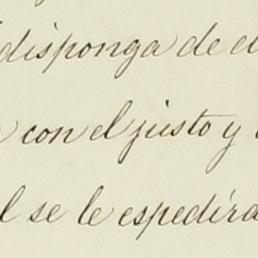 disponga de el
con el justo y
l se le espedira